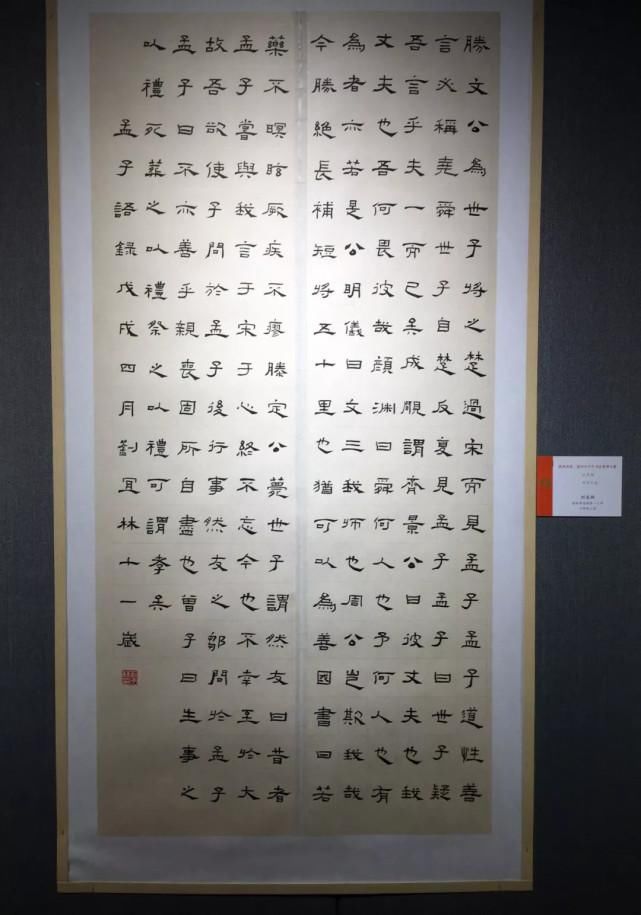 滕文公為世子將之楚過宋而見孟子孟子道性善
言必稱堯舜世子自楚反夏見孟子孟子曰世子疑
吾言乎夫一而已矣成覸謂齊景公曰彼丈夫也我
丈夫也吾何畏彼哉顏淵曰舜何人也予何人也有
為者亦若是公明儀曰文王我師也周公豈欺我哉
今滕絕長補短將五十里也猶可以為善國書曰若
藥不瞑眩厥疾不瘳滕定公薨世子謂然友曰昔者
孟子嘗與我言于宋于心終不忘今也不幸至於大
故吾欲使子問於孟子後行事然友之鄒問於孟子
孟子曰不亦善乎親喪固所自盡也曾子曰生事之
以禮死葬之以禮祭之以禮可謂孝矣
孟子語錄戊戌四月劉宜林十一歲